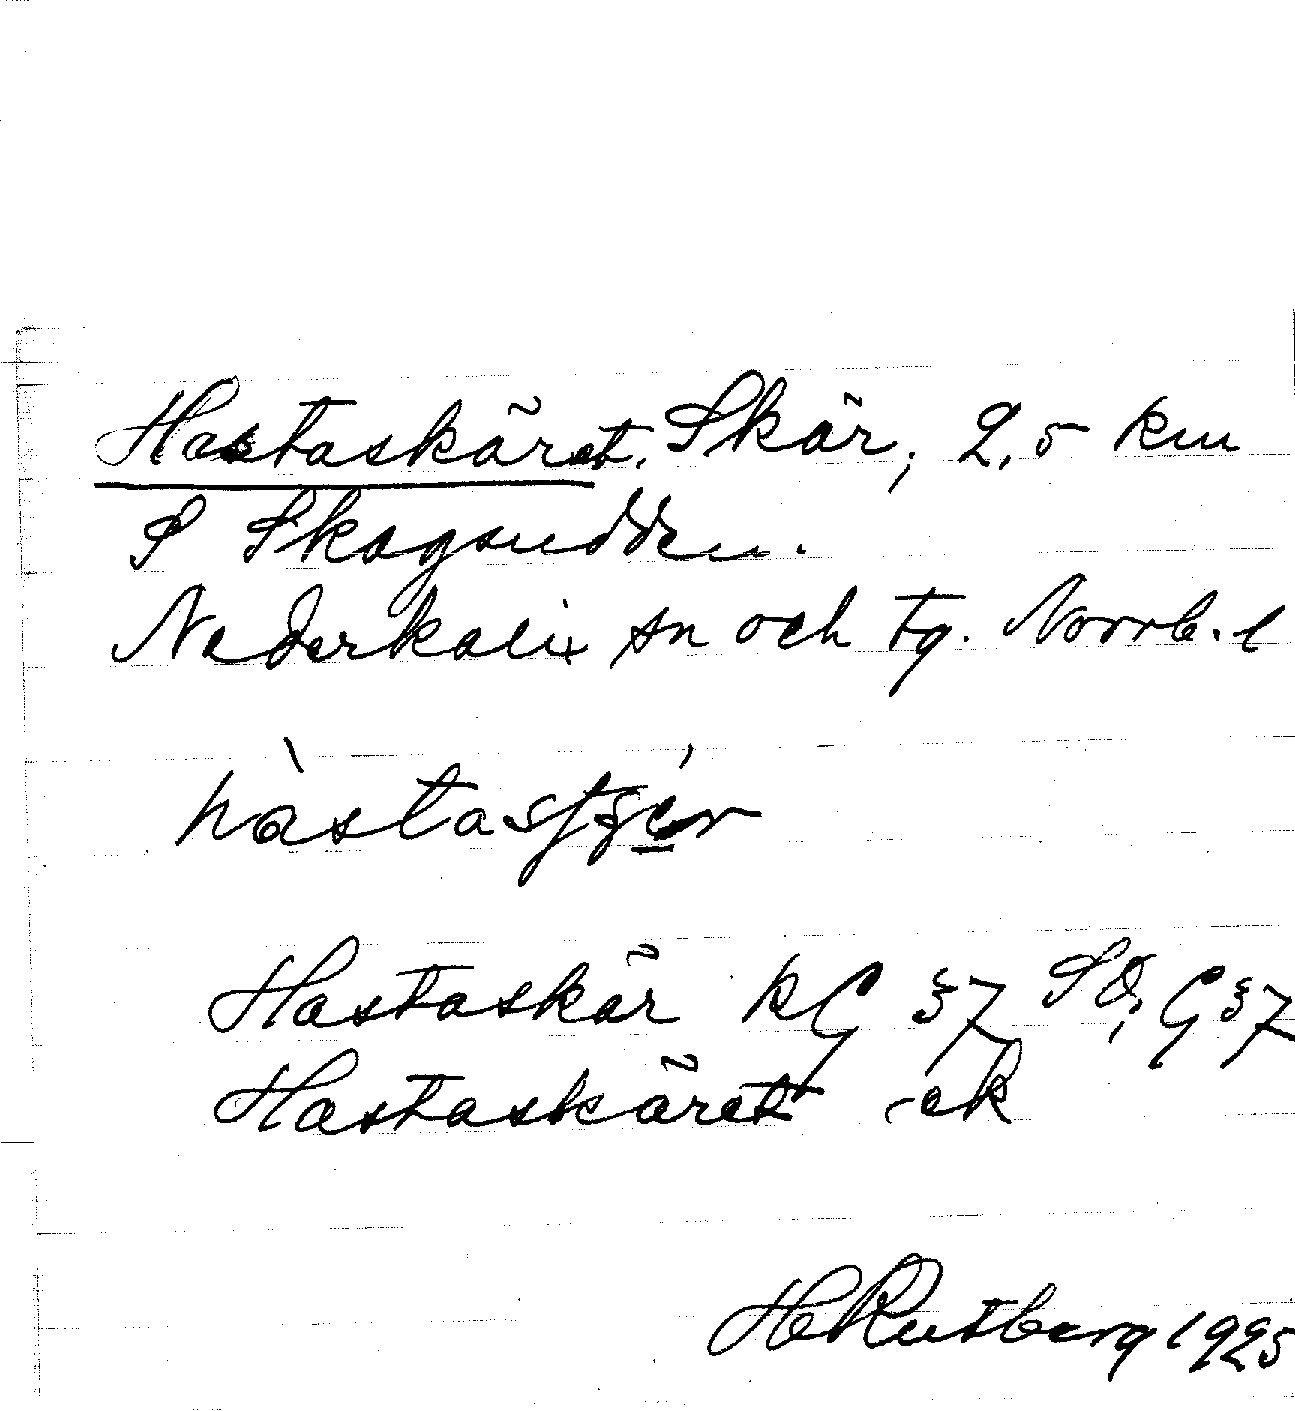 Hastaskäret. Skär, 2,5 km
S Skogsudden.
Nederkalix sn och tg. Norrb. l
Hastaskär KG 37 SO, G 37
Hastaskäret -ek
HRutberg 1925